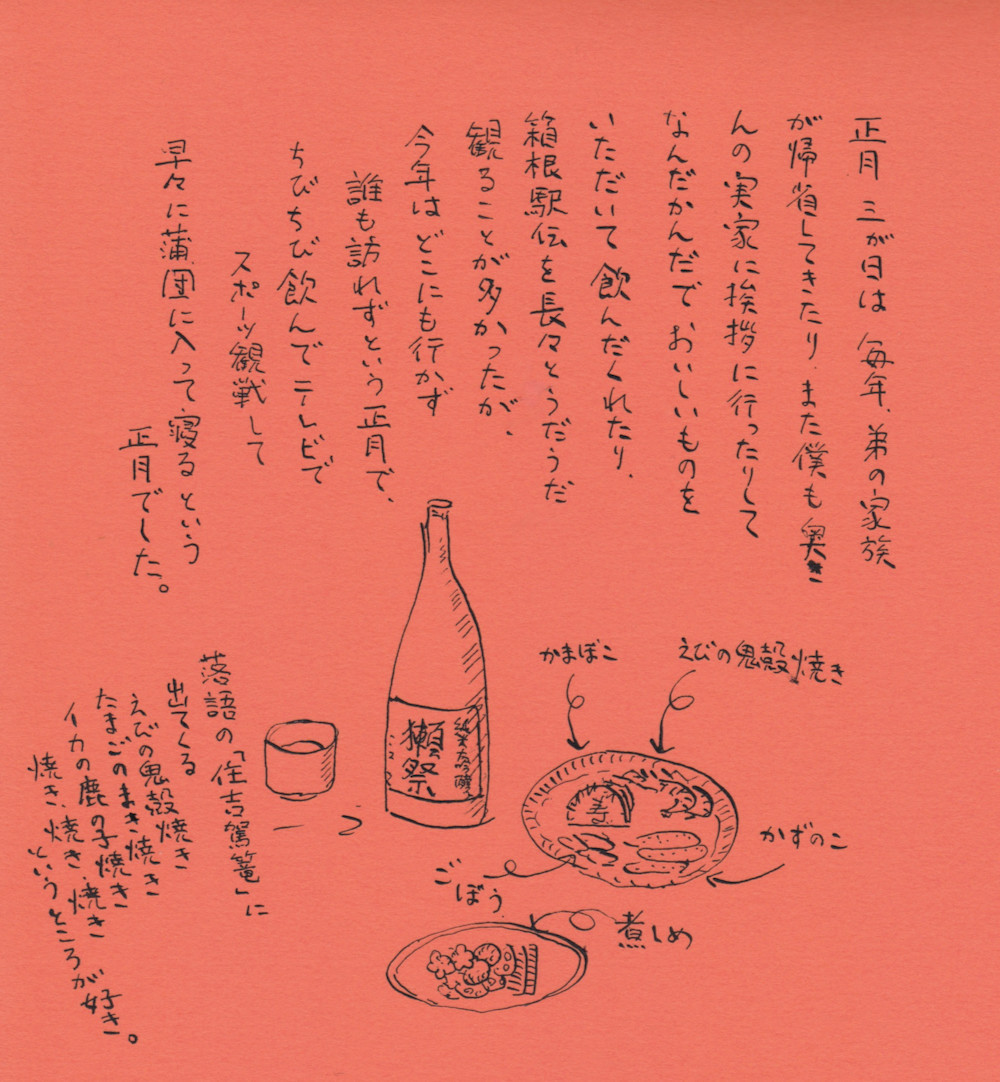 正月三が日は毎年、弟の家族
が帰省してきたり、また僕も奥さ
んの実家に挨拶に行ったりして
なんだかんだでおいしいものを
いただいて飲んだくれたり、
箱根駅伝を長々とうだうだ
観ることが多かったが、
今年はどこにも行かず
誰も訪れずという正月で、
ちびちび飲んでテレビで
スポーツ観戦して
早々に蒲団に入って寝るという
正月でした。
かまぼこ
えびの鬼殻焼き
純米大吟醸
獺祭
寿
かずのこ
ごぼう
煮しめ
落語の「住吉駕篭」に
出てくる
えびの鬼殻焼き
たまごのまき焼き
イカの鹿の子焼き
焼き、焼き、焼き
というところが好き。